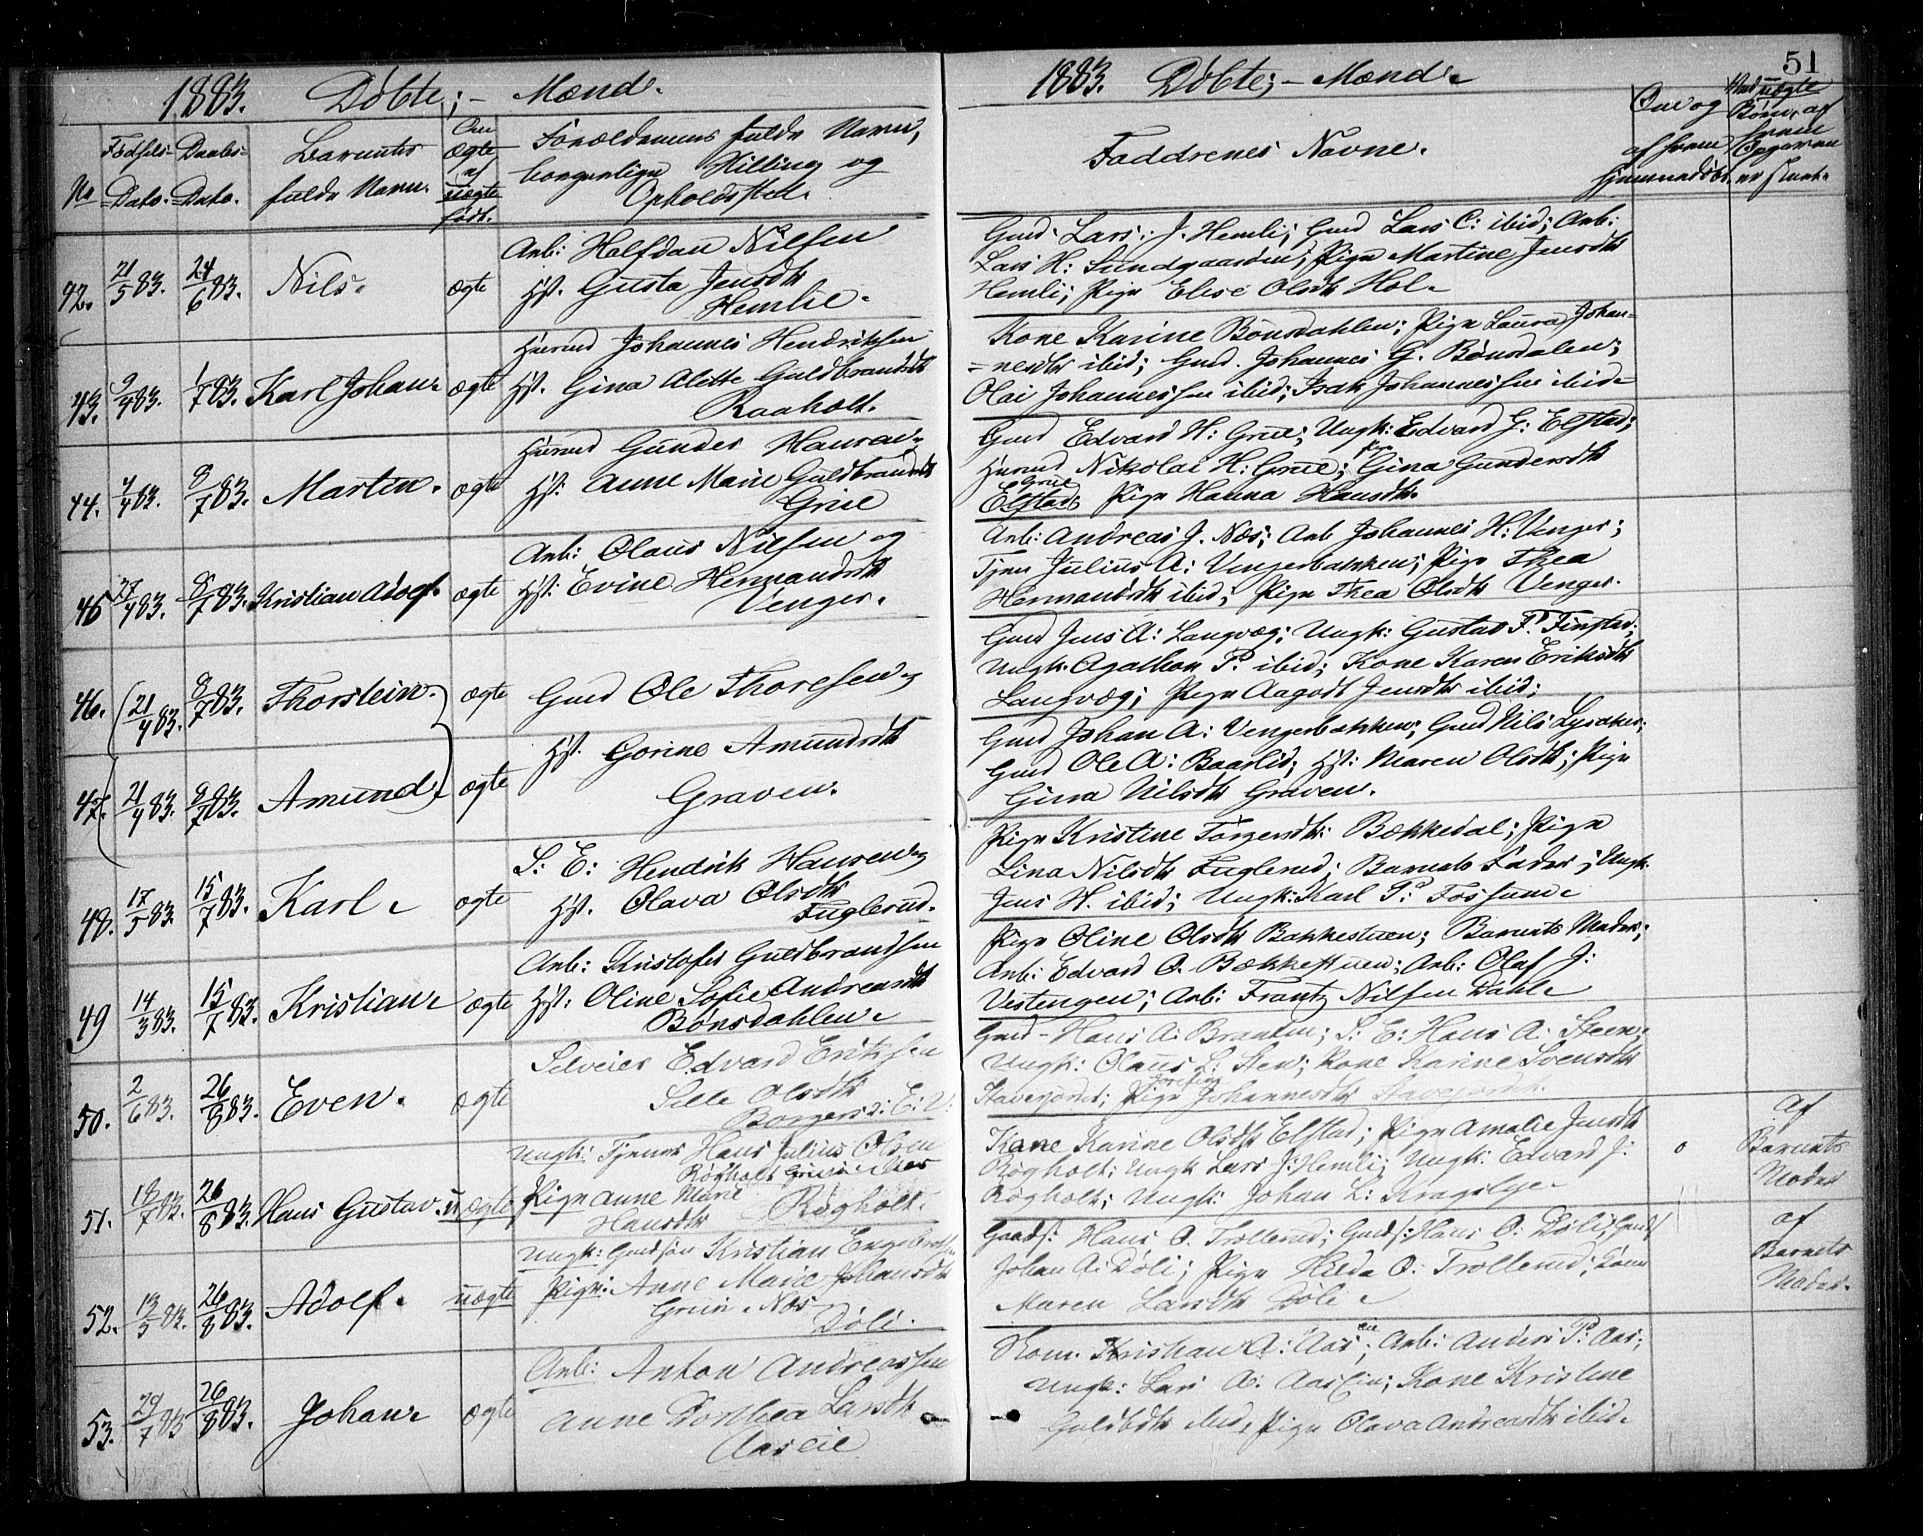 1883. Døbte; - Mænd.
No
Fødsels-
Dato.
Daabs-
Dato.
Barnets
fulde Navn.
Om
ægte
el
uægte
født.
Forældrenes fulde Navn,
borgerlige Stilling og
Opholdssted.
42. 21/5 83. 24/6 83. Nils. ægte
Arb: Halfdan Nilsen
Hst. Gusta Jensdtr
Hemlie.
43. 9/4 83. 1/7 83. Karl Johan. ægte
Husmd Johannes Hendriksen
Hst. Gina Alette Guldbrandsdt
Raaholt.
44. 4/4 83. 8/7 83. Martin. ægte
Husmd Gunder Hansen
Hst. Anne Marie Guldbrandsdt
Grue
45 27/4 83. 8/7 83. Kristian Adolf. ægte
Arb: Olaus Nilsen og
Hst: Evine Hermandsdtr
Venger.
46. 21/4 83. 8/7 83. Thorstein. ægte
Gmd Ole Thoresen og
47. 21/4 83. 8/7 83. Amund. ægte
Hst. Gorine Amundsdtr
Graven.
48. 17/5 83. 15/7 83. Karl. ægte
S: E: Hendrik Hansen og
Hst. Olava Olsdtr
Fuglerud.
49 14/3 83. 15/7 83. Kristian. ægte
Arb: Kristofer Guldbrandsen
Hst: Oline Sofie Andreasdt
Bønsdahlen.
50. 2/6 83. 26/8 83. Even. ægte
Selveier Edvard Eriksen
Sille Olsdtr
Borgersd: E: V:
51. 18/7 83. 26/8 83. Hans Gustav. uægte
Ungk: Tjener Hans Julius Olsen
Røgholt
Pige Anne Marie
Hansdtr Røgholt.
52. 13/5 83. 26/8 83. Adolf. uægte
Ungk: Gmdsøn Kristian Engebretsen
Pige: Anne Marie Johansdt
Døli.
53. 29/7 83 26/8 83. Johan. ægte
Arb: Anton Andreassen
Anne Dorthea Larsdt
Aaseie
1883. Døbte; - Mænd.
51
Faddrenes Navne.
Om og
af hvem
hjemmedøbt.
Ved uægte
Børn, af
hvem
Opgaven
er skeet.
Gmd. Lars: J. Hemli; Gmd Lars C: ibid; Arb:
Lars H: Sundgaarden; Pige Martine Jensdtr
Hemli; Pige Elise Olsdtr Hol.
Kone Karine Bønsdahlen; Pige Laura Johan=
=nesdtr ibid; Gmd. Johannes G. Bønsdalen;
Olai Johannessen ibid; Isak Johannessen ibid.
Gmd Edvard H: Grue; Ungk: Edvard G: Elstad;
Husmd Nikolai H: Grue; Pige Gina Gundersdt
Elstad; Grue Pige Hanna Hansdtr.
Arb: Andreas J. Næs; Arb Johannes H: Venger;
Tjener Julius A: Vengerbakken; Pige Thea
Hermandsdtr ibid; Pige Thea Olsdtr Venger.
Gmd Jens A: Langvæg; Ungk: Gustav P. Finstad;
Ungk: Agathon P. ibid; Kone Karen Eriksdtr
Langvæg; Pige Aagodt Jensdtr ibid;
Gmd Johan A: Vengerbakken; Gmd Nils Lysaker;
Gmd Ole A: Baarlid; Hst: Maren Olsdtr; Pige
Gina Nilsdtr Graven.
Pige Kristine Torgersdtr: Bækkedal; Pige
Lina Nilsdtr Fuglerud; Barnets Fader; Ungk:
Jens H. ibid; Ungk: Karl P: Fossum.
Pige Oline Olsdtr Bakkestuen; Barnets Moder;
Arb: Edvard O. Bækkestuen; Arb: Olaf J:
Vestengen; Arb: Frantz Nilsen Dahl.
Gmd - Hans A: Braaten; S: E: Hans A: Steen;
Ungk: Olaus L: Sten; Kone Karine Svensdtr
Stavesjordet; Pige Josefine Johannesdtr
Kone Karine Olsdtr Elstad; Pige Amalie Jensdt
Røgholt: Ungk Lars J: Hemli; Ungk: Edvard J:
Røgholt; Ungk: Johan L: Kragslye.
Af
Barnets
Moder
Gaards: Hans O. Trollerud; Gmds: Hans O: Døli; Gmds
Johan A: Døli; Pige Hilda O: Trollerud; Kone
Maren Larsdtr Doli.
af
Barnets
Moder.
Kom. Kristian A: Aas eie; Arb: Anders P: Aas;
Ungk: Lars A: Aaseie; Kone Kristine
Guldbdtr ibid, Pige Olava Andreasdtr ibid.